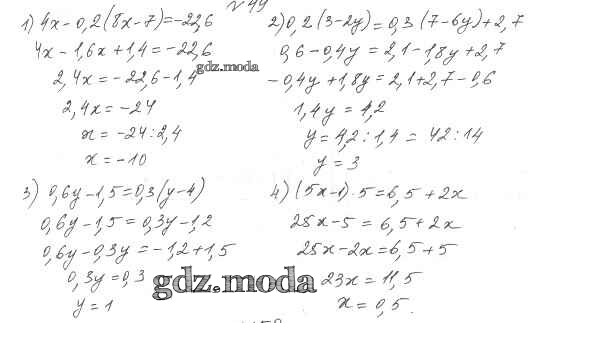 № 49
1) 4x - 0,2(8x - 7) = -22,6
4x - 1,6x + 1,4 = -22,6
2,4x = -22,6 - 1,4
2,4x = -24
x = -24 : 2,4
x = -10
2) 0,2(3 - 2y) = 0,3(7 - 6y) + 2,7
0,6 - 0,4y = 2,1 - 1,8y + 2,7
-0,4y + 1,8y = 2,1 + 2,7 - 0,6
1,4y = 4,2
y = 4,2 : 1,4 = 42 : 14
y = 3
3) 0,6y - 1,5 = 0,3(y - 4)
0,6y - 1,5 = 0,3y - 1,2
0,6y - 0,3y = -1,2 + 1,5
0,3y = 0,3
y = 1
4) (5x - 1) · 5 = 6,5 + 2x
25x - 5 = 6,5 + 2x
25x - 2x = 6,5 + 5
23x = 11,5
x = 0,5.
gdz.moda
gdz.moda